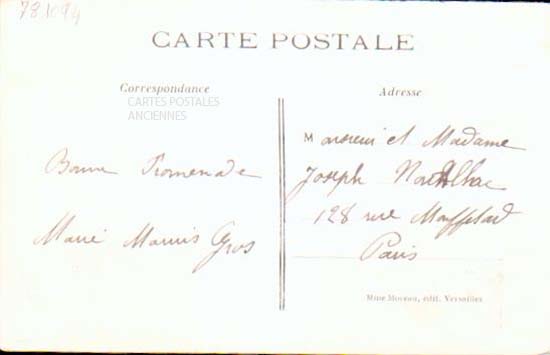 78.1094
CARTE POSTALE
Correspondance
Adresse
CARTES POSTALES
ANCIENNES
Bonne Promenade
Marie Marius Gros
Monsieur et Madame
Joseph
128 rue
Paris
Mme Moreau, édit. Versailles